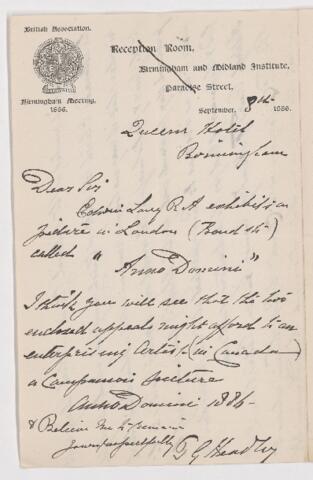 British Association.
Birmingham Meeting.
1886.
Reception Room,
Birmingham and Midland Institute,
Paradise Street,
September, 8th 1886.
Queens Hotel
Birmingham
Dear Sir
Edwin Long R A exhibits a
picture in London (Bond St)
called "
Anno Domini"
I think you will see that the two
enclosed appeals might afford to an
enterprising Artist (in Canada)
a Companion picture
Anno Domini 1886
& Believe me to remain
yours respectfully T G Headley